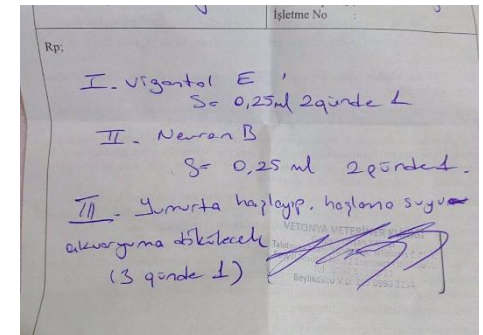 İşletme No :
Rp;
I - Vigantol E
S= 0,25ml 2 günde 1
II - Nevran B
S= 0,25 ml 2 günde 1.
III - Yumurta haşlayıp, haşlama suyu
akvaryuma dökülecek
(3 günde 1)
VETONYA VETERİNER
Beylikdüzü V.D.